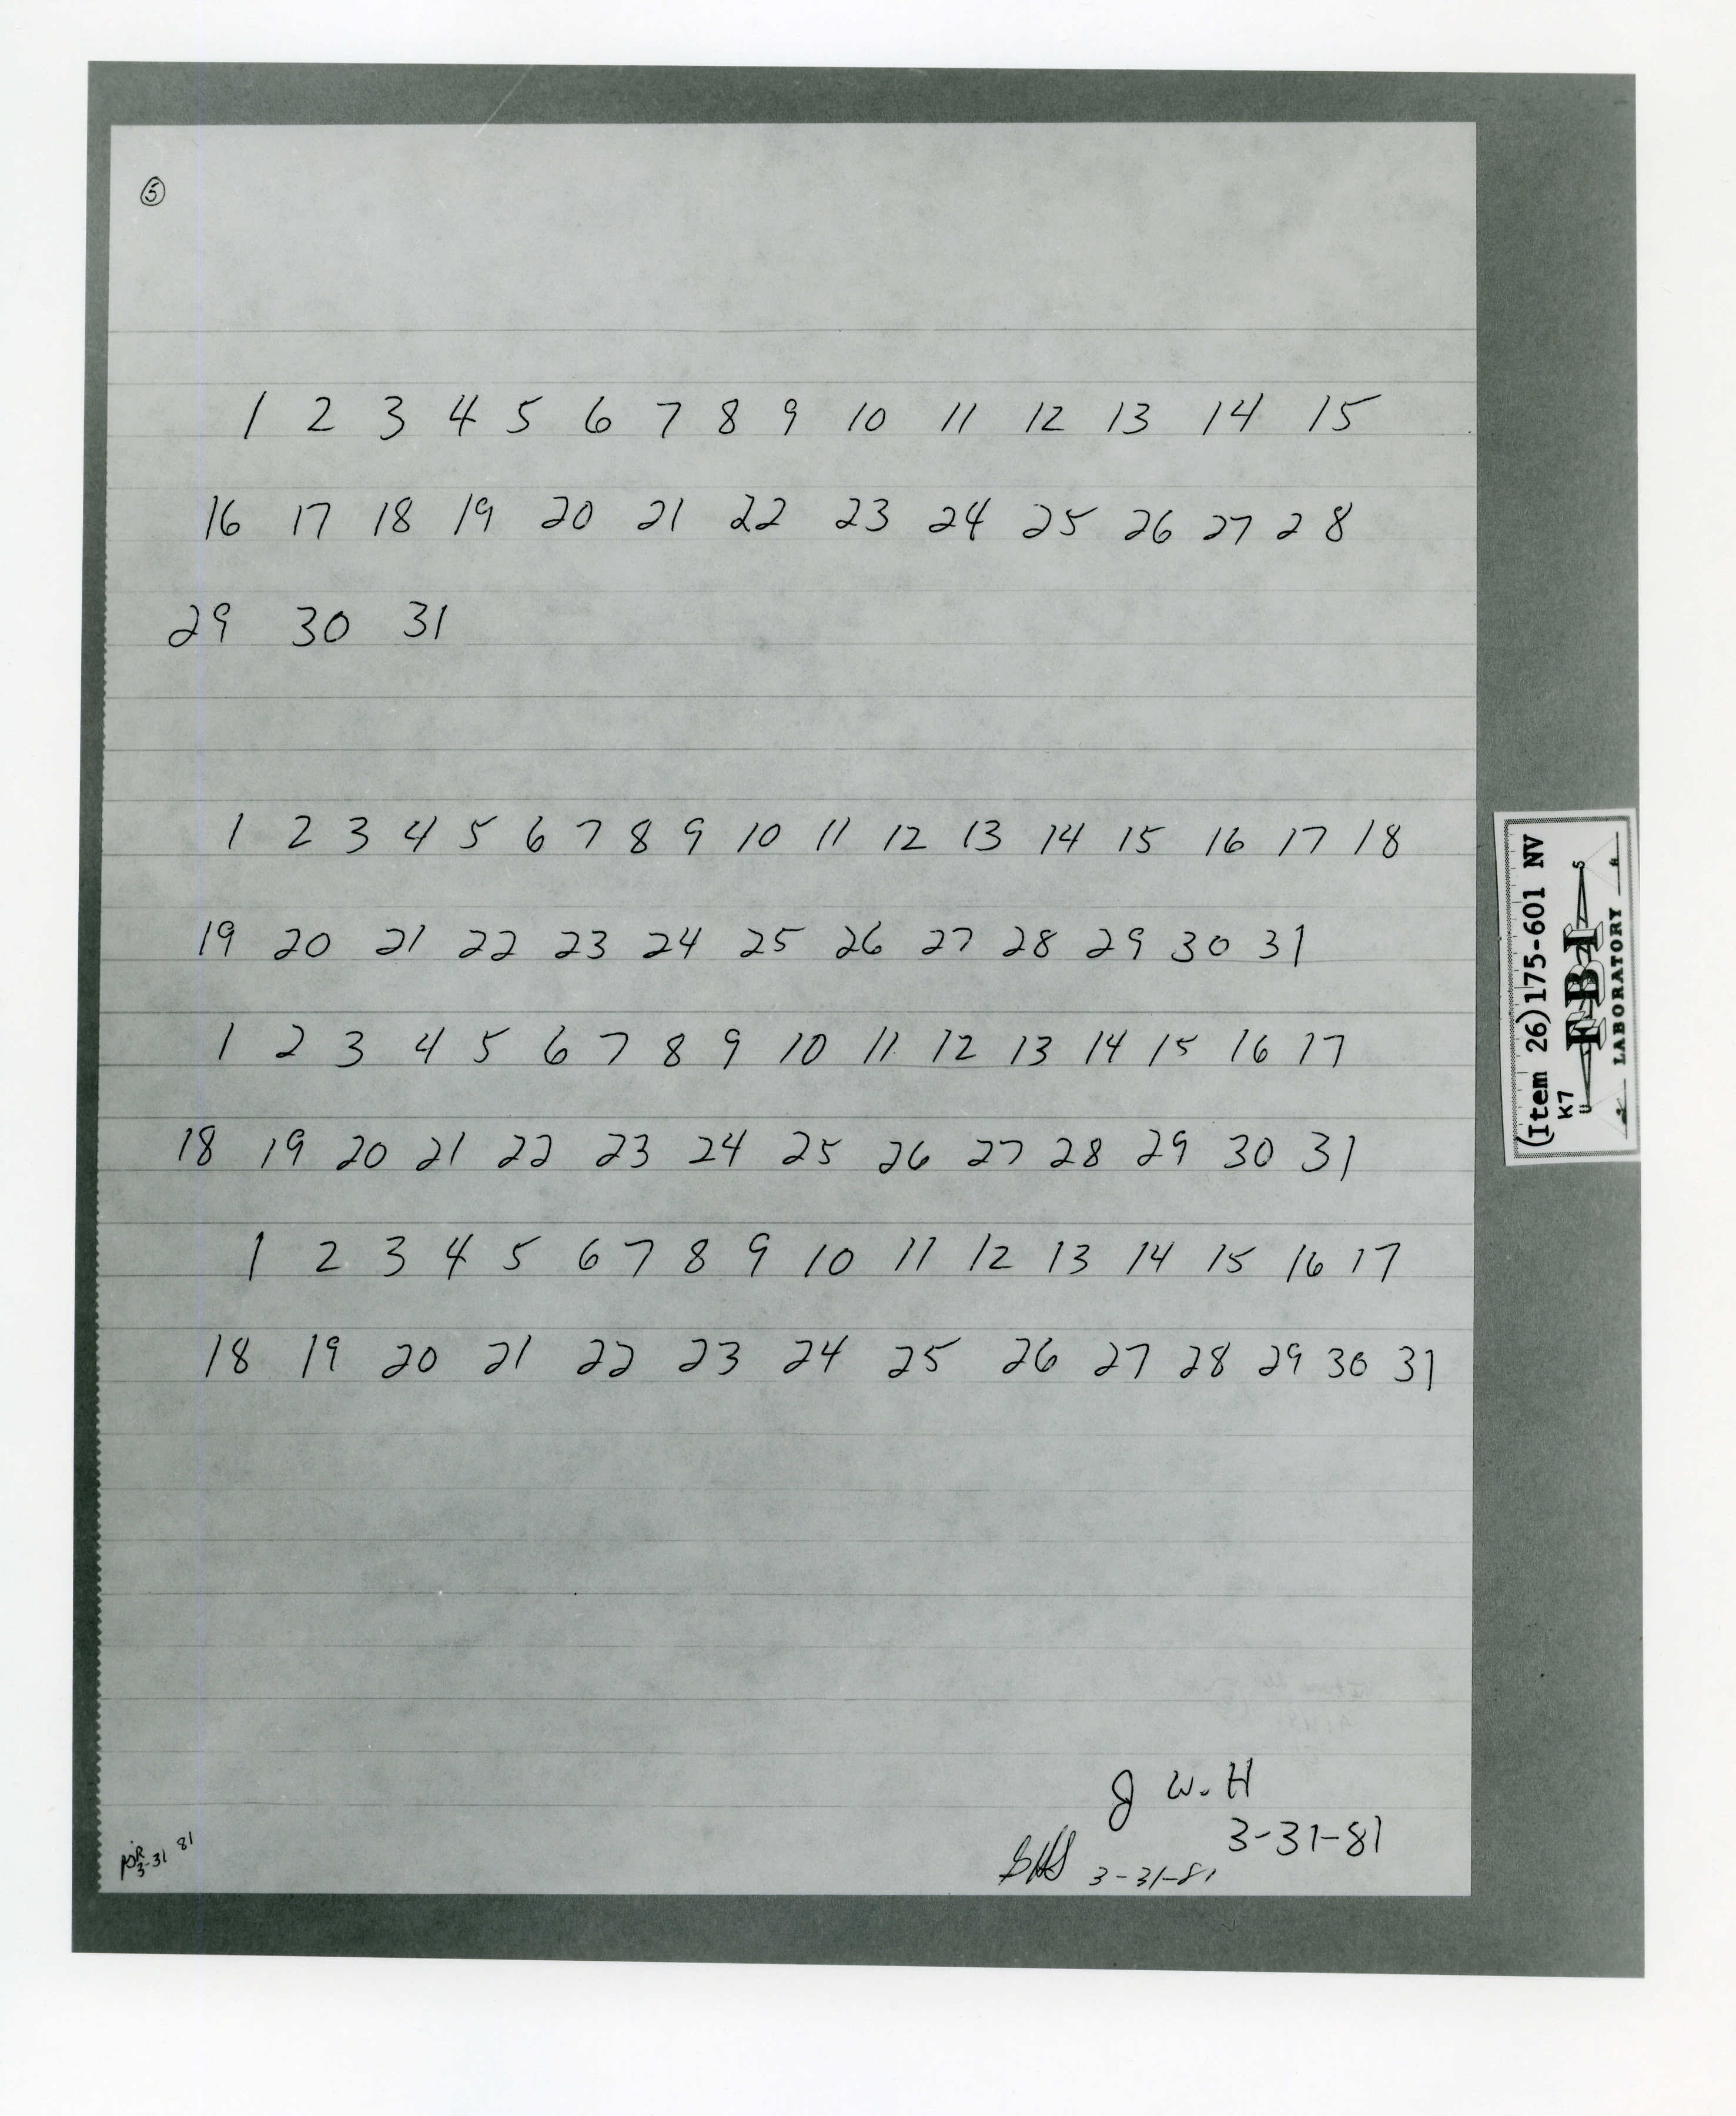 5
1 2 3 4 5 6 7 8 9 10 11 12 13 14 15
16 17 18 19 20 21 22 23 24 25 26 27 28
29 30 31
1 2 3 4 5 6 7 8 9 10 11 12 13 14 15 16 17 18
19 20 21 22 23 24 25 26 27 28 29 30 31
1 2 3 4 5 6 7 8 9 10 11 12 13 14 15 16 17
18 19 20 21 22 23 24 25 26 27 28 29 30 31
1 2 3 4 5 6 7 8 9 10 11 12 13 14 15 16 17
18 19 20 21 22 23 24 25 26 27 28 29 30 31
J W. H
3-31-81
3-31-81
3-31 81
(Item 26)175-601 NV
K7
FBI
LABORATORY